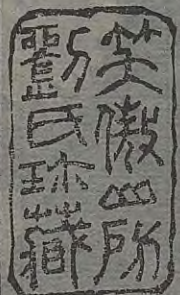 笑傲山房
劉氏珍藏